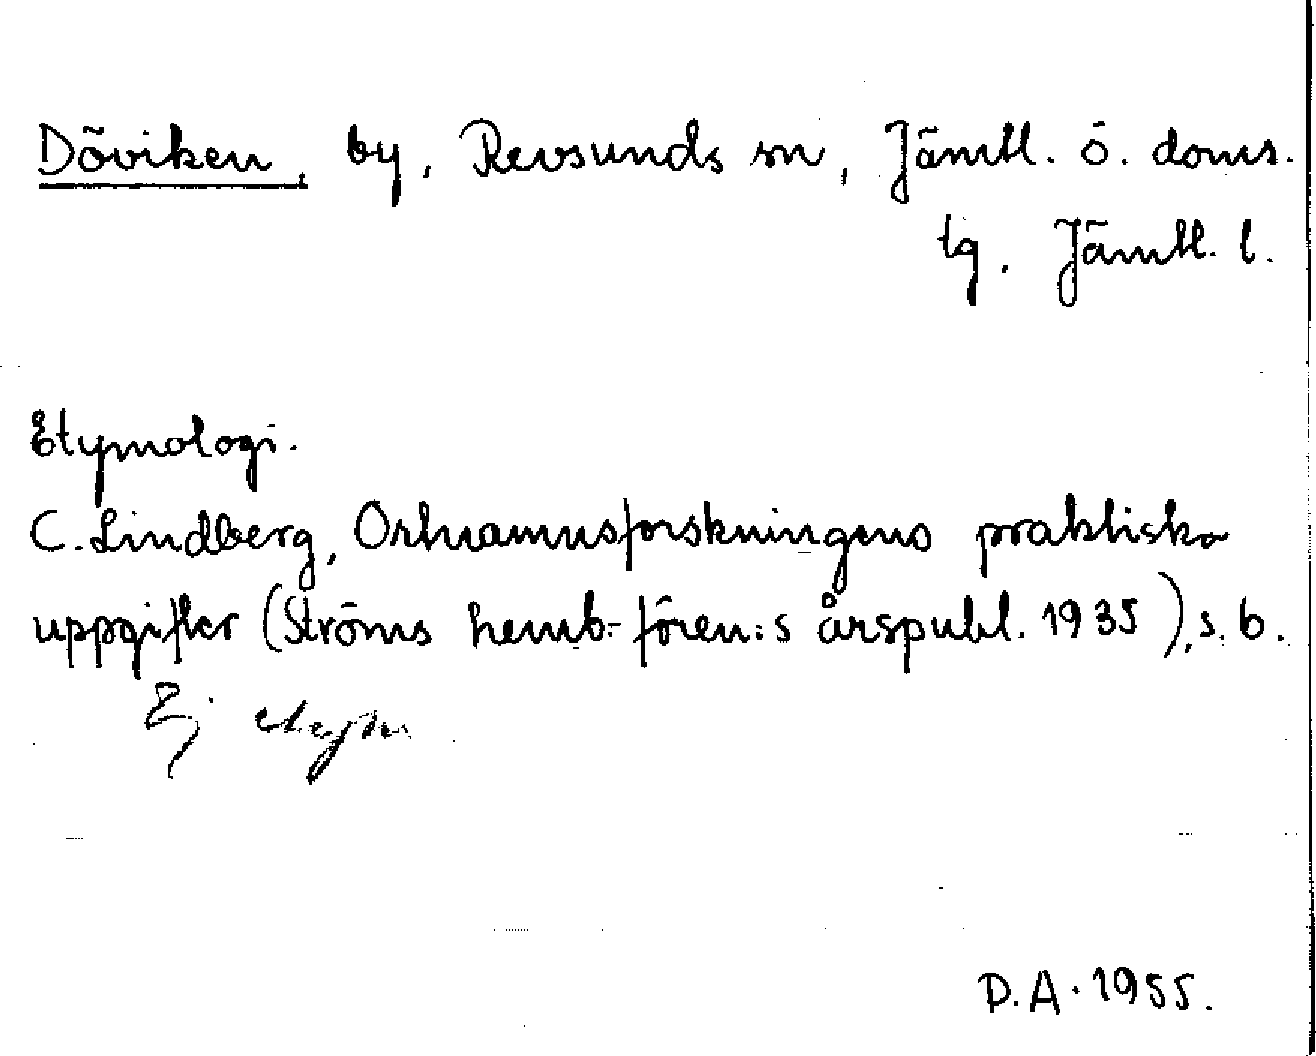 Döviken, by, Revsunds sn, Jämtl. ö. doms.
tg. Jämtl. l.
Etymologi.
C. Lindberg, Ortnamnsforskningens praktiska
uppgifter (Ströms hemb.-fören:s årspubl. 1935), s. 6.
Ej
D.A. 1955.